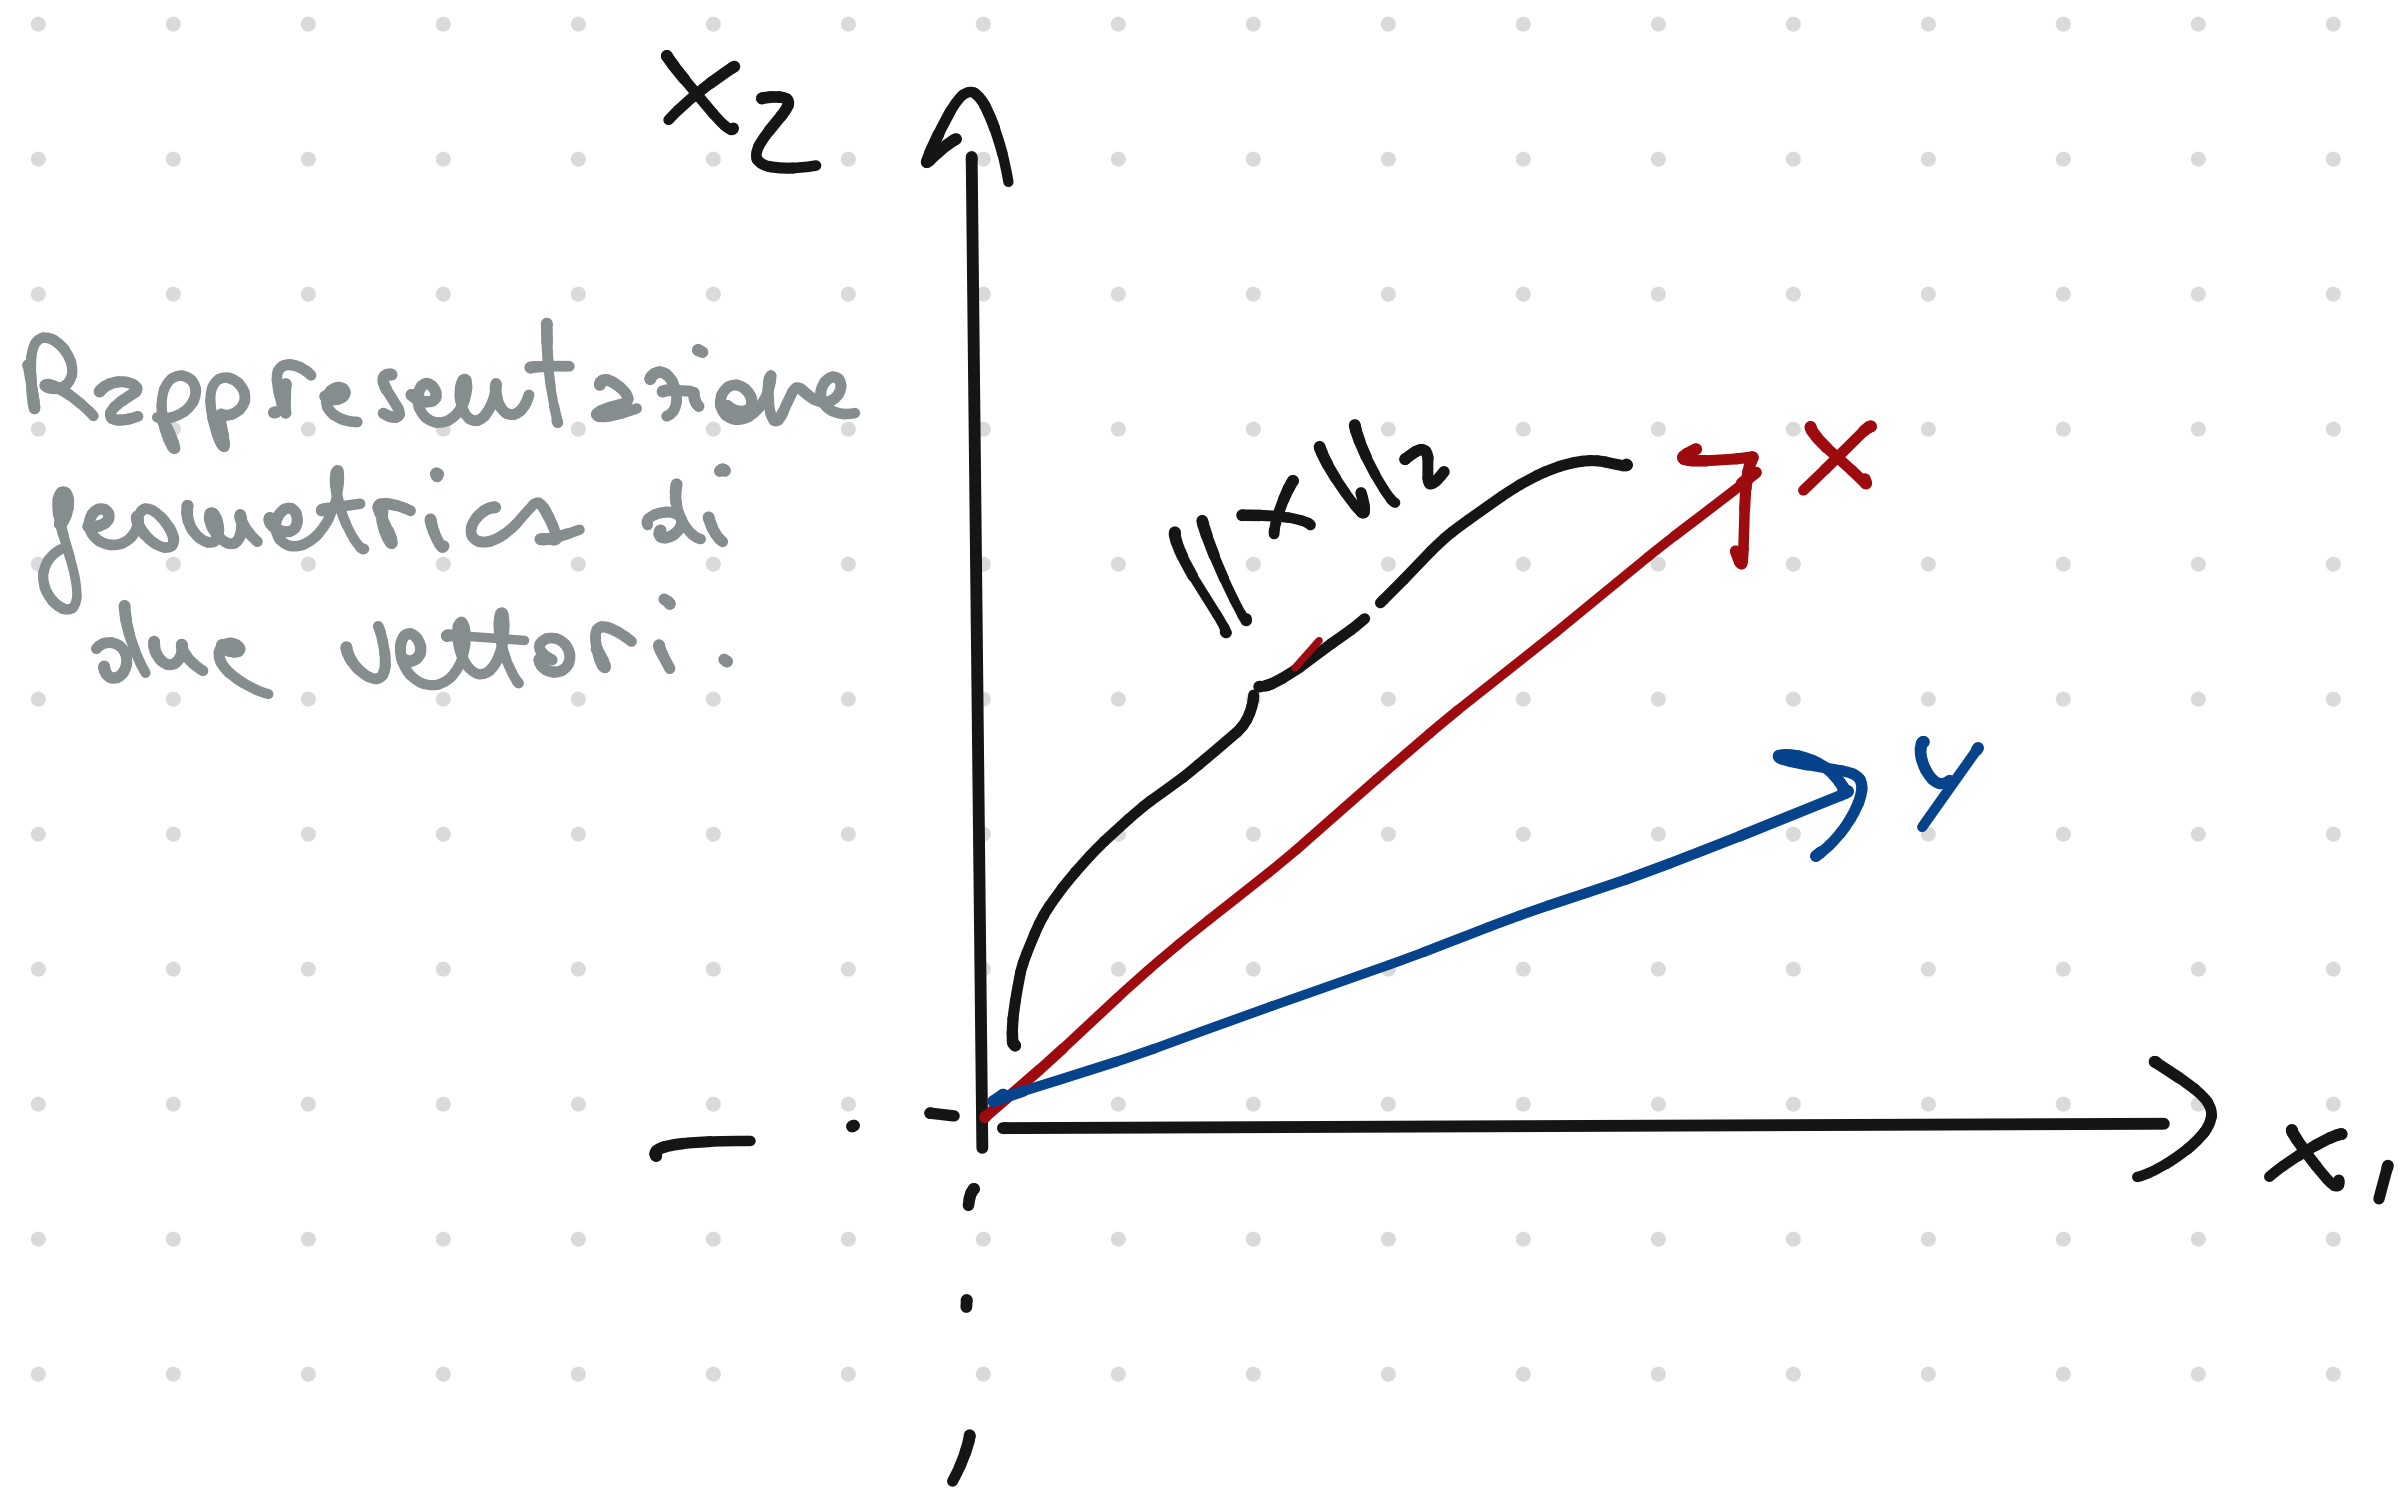 x2
Rappresentazione
geometrica di
due vettori.
||x||2
x
y
x1